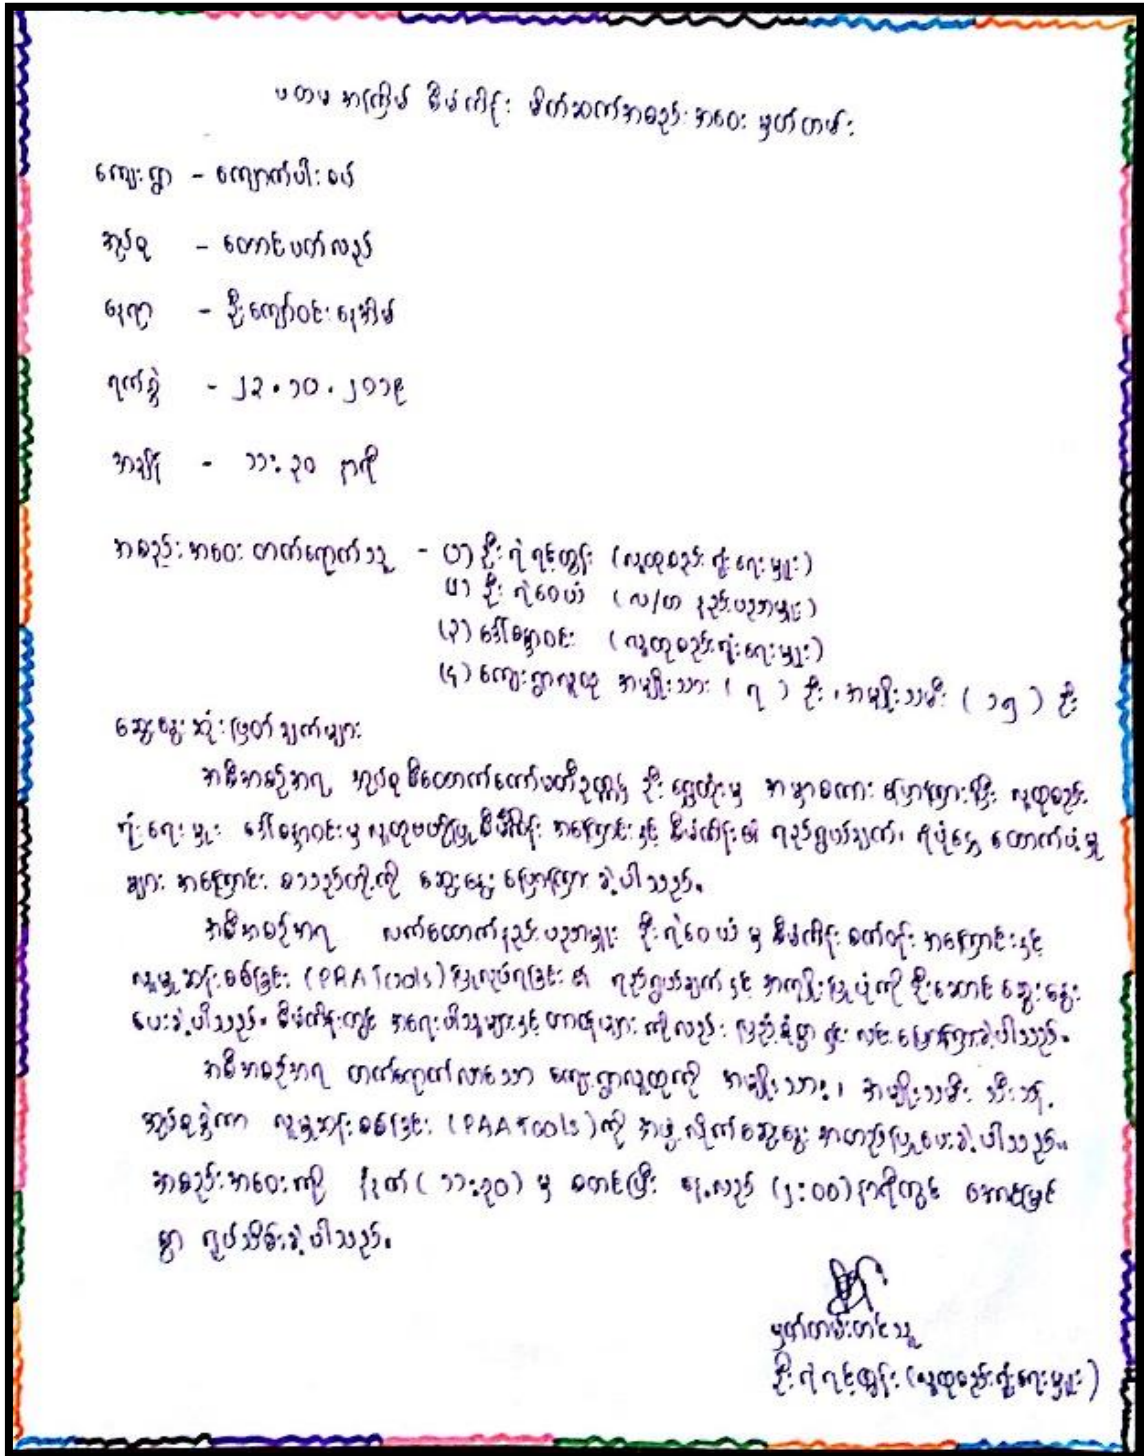 ပထမအကြိမ် စီမံကိန်း မိတ်ဆက်အစည်းအဝေး မှတ်တမ်း
ကျေးရွာ - ကျောက်ပါးစပ်
အုပ်စု - တောင်ပတ်လည်
နေရာ - ဦးကျော်ဝင်းနေအိမ်
ရက်စွဲ - ၂၃.၁၀.၂၀၁၉
အချိန် - ၁၁:၃၀ နာရီ
အစည်းအဝေး တက်ရောက်သူ - (၁) ဦးရဲရင့်ထွန်း (လူထုစည်းရုံးရေးမှူး)
(၂) ဦးရဲဝေယံ (လ/ထ နည်းပညာမှူး)
(၃) ဒေါ်ဝင်း (လူထုစည်းရုံးရေးမှူး)
(၄) ကျေးရွာလူထု အမျိုးသား (၇) ဦး၊ အမျိုးသမီး (၁၅) ဦး
ဆွေးနွေးဆုံးဖြတ်ချက်များ
အစီအစဉ်အရ အုပ်စုစီထောက်ကော်မတီဥက္ကဋ္ဌ ဦးရွှေထိုးမှ အမှာစကား ပြောကြားပြီး လူထုစည်း
ရုံးရေးမှူး ဒေါ်ဝင်းမှ လူထုဗဟိုပြုစီမံကိန်း အကြောင်းနှင့် စီမံကိန်း၏ ရည်ရွယ်ချက်၊ ရံပုံငွေ ထောက်ပံ့မှု
များ အကြောင်း စသည်တို့ကို ဆွေးနွေးပြောကြားခဲ့ပါသည်။
အစီအစဉ်အရ လက်ထောက်နည်းပညာမှူး ဦးရဲဝေယံမှ စီမံကိန်းစက်ဝန်း အကြောင်းနှင့်
လူမှုဆန်းစစ်ခြင်း (PAA Tools) ပြုလုပ်ရခြင်း၏ ရည်ရွယ်ချက်နှင့် အကျိုးပြုပုံကို ဦးဆောင်ဆွေးနွေး
ပေးခဲ့ပါသည်။ စီမံကိန်းတွင် အရေးပါသူများနှင့် တာဝန်များကိုလည်း ပြည့်စုံစွာ ရှင်းလင်းပြောကြားခဲ့ပါသည်။
အစီအစဉ်အရ တက်ရောက်လာသော ကျေးရွာလူထုကို အမျိုးသား၊ အမျိုးသမီး သီးသန့်
အုပ်စုခွဲကာ လူမှုဆန်းစစ်ခြင်း (PAA Tools) ကို အဖွဲ့လိုက်ဆွေးနွေး အတည်ပြုပေးခဲ့ပါသည်။
အစည်းအဝေးကို နံနက် (၁၁:၃၀) မှ စတင်ပြီး နေ့လည် (၂:၀၀) နာရီတွင် အောင်မြင်
စွာ ရုပ်သိမ်းခဲ့ပါသည်။
မှတ်တမ်းတင်သူ
ဦးရဲရင့်ထွန်း (လူထုစည်းရုံးရေးမှူး)